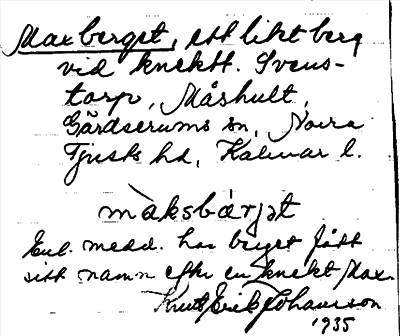 Maxberget, ett litet berg
vid knektt. Svens-
torp, Måshult,
Gärdserums sn, Norra
Tjusts hd, Kalmar l.
màksbárjat
Enl. medd. har berget fått
sitt namn efter en knekt Max.
Knut Erik Johansson
1935